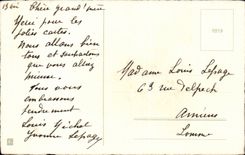 Chère grand'mère
Merci pour les
jolies cartes.
Nous allons bien
tous et souhaitons
que vous alliez
mieux.
Nous vous
embrassons
tendrement
Louis Michel
Yvonne Lepage
Madame Louis Lepage
63 rue Delpech
Amiens
Somme